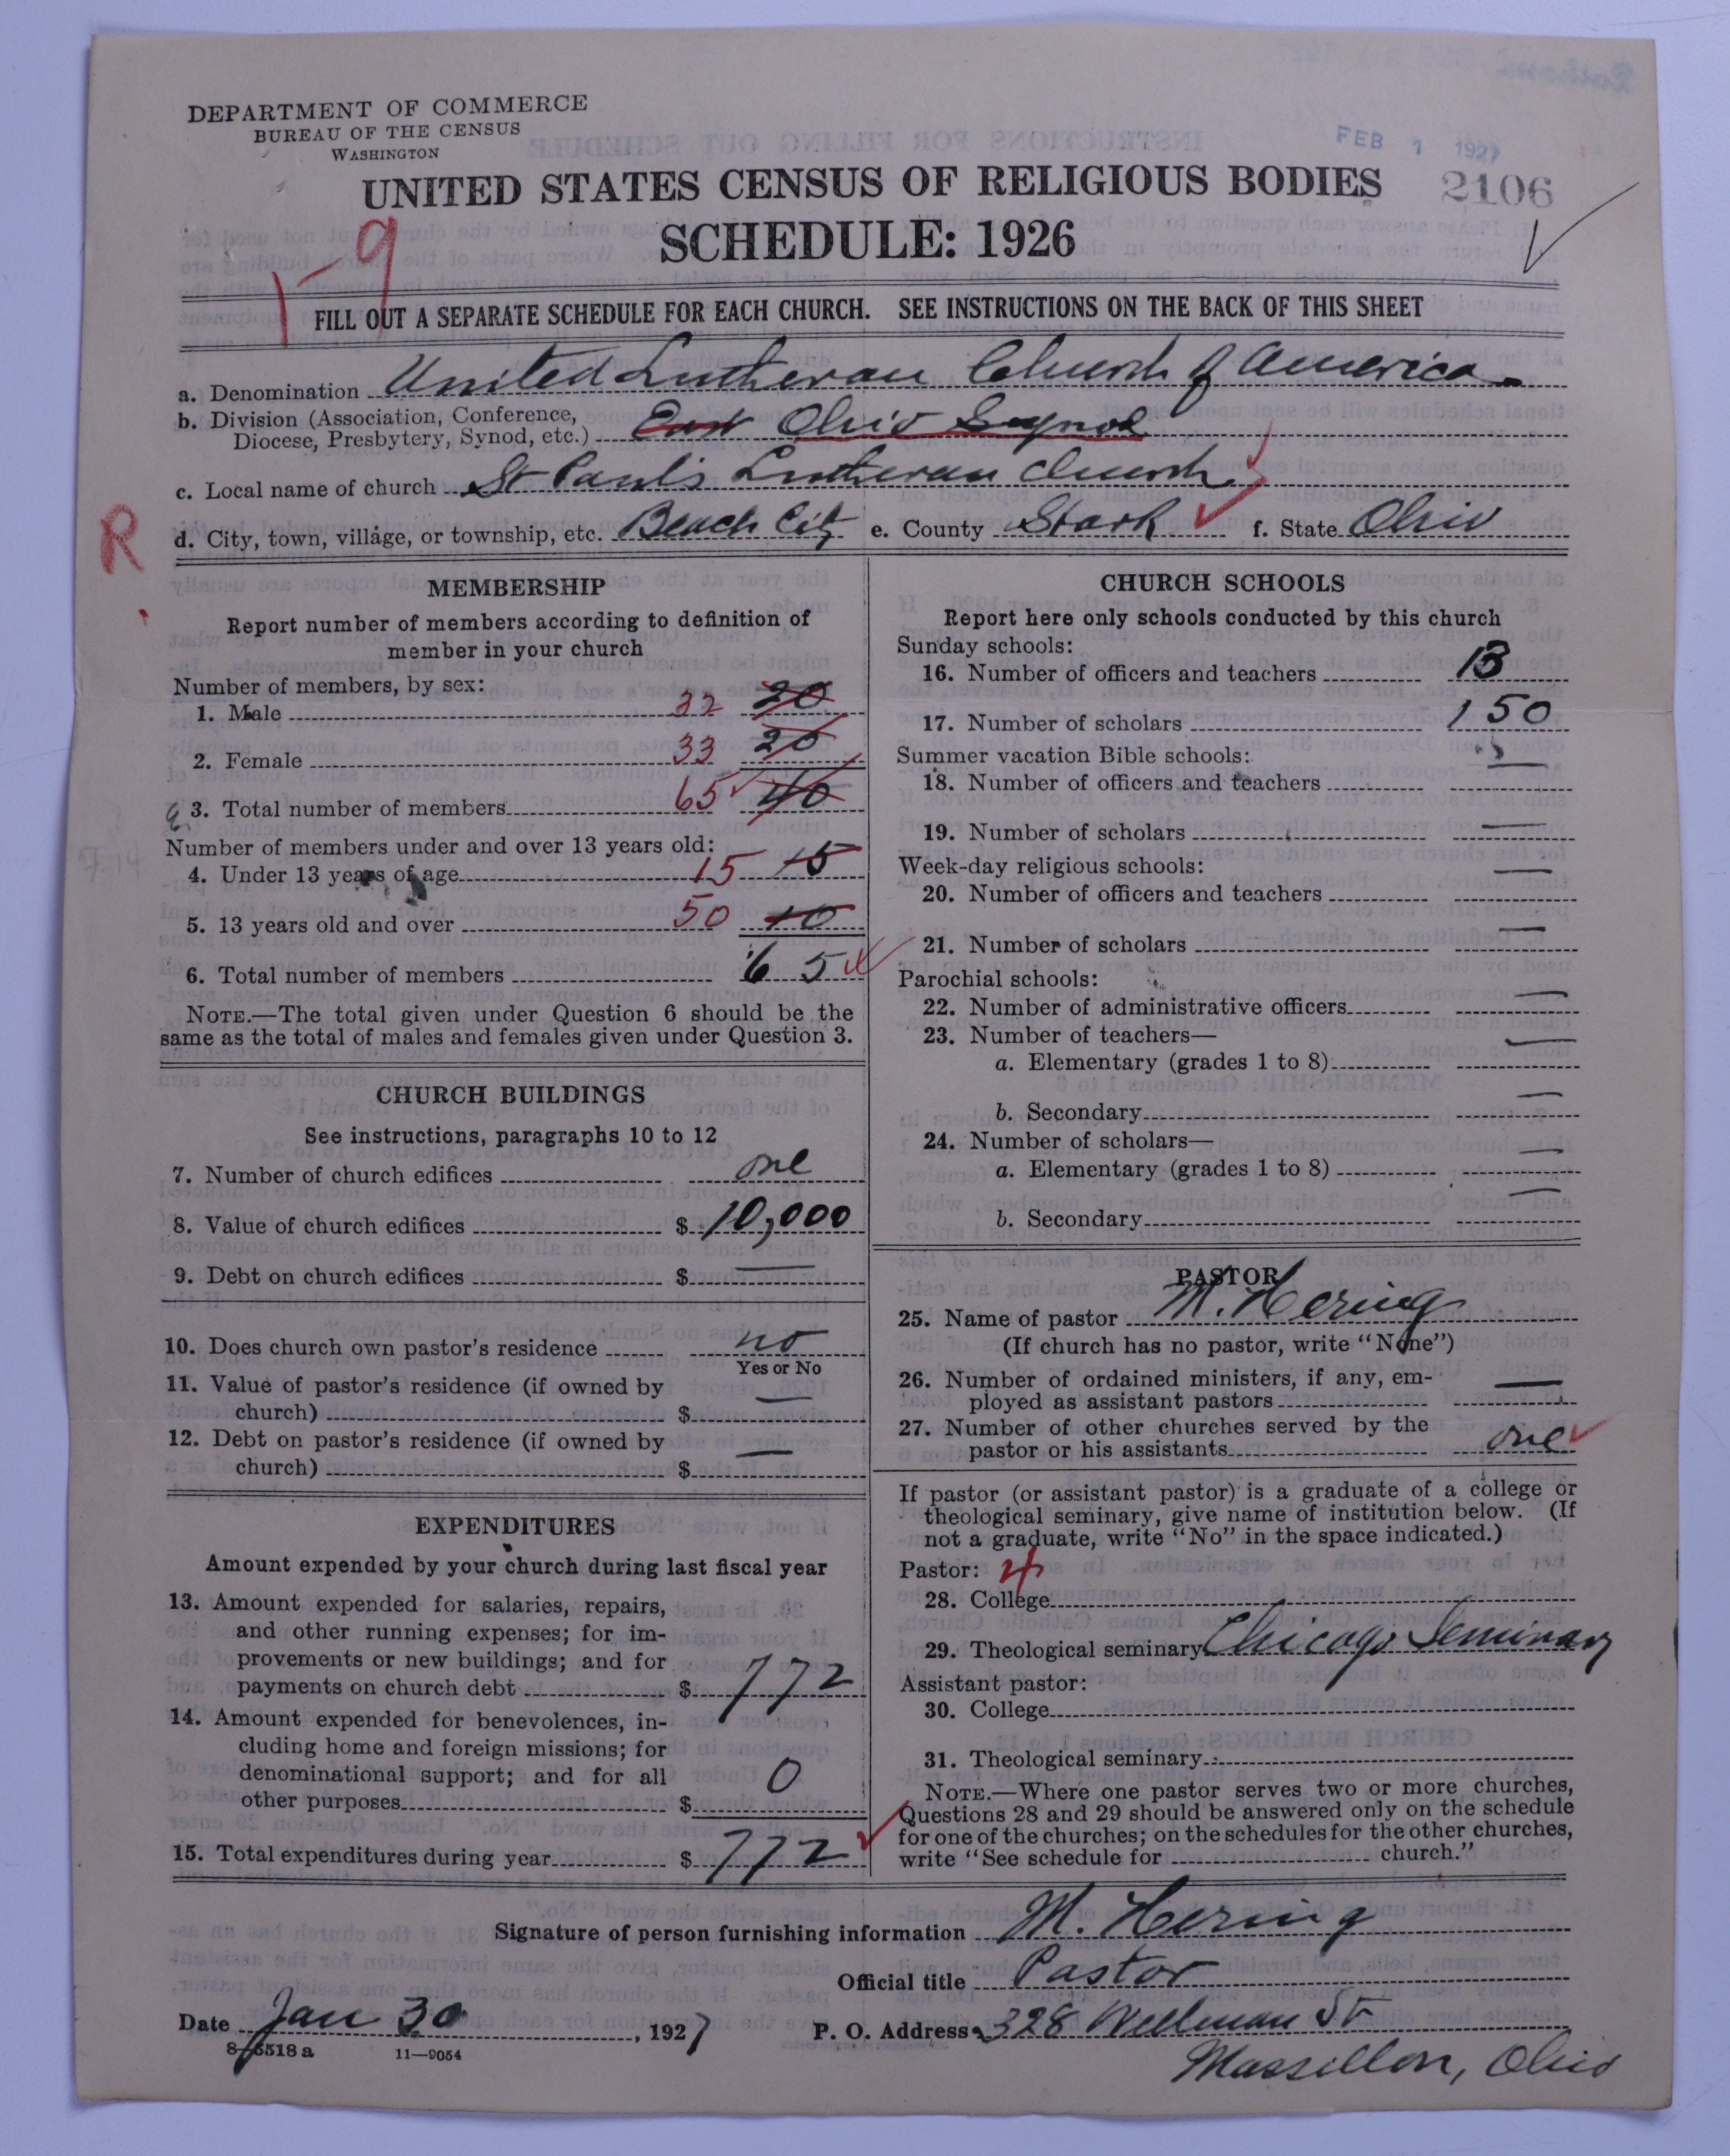 DEPARTMENT OF COMMERCE
BUREAU OF THE CENSUS
WASHINGTON
FEB 1 1927
UNITED STATES CENSUS OF RELIGIOUS BODIES
2106
SCHEDULE: 1926
1-9
FILL OUT A SEPARATE SCHEDULE FOR EACH CHURCH. SEE INSTRUCTIONS ON THE BACK OF THIS SHEET
a. Denomination United Lutheran Church of America
b. Division (Association, Conference,
Diocese, Presbytery, Synod, etc.) East Ohio Synod
c. Local name of church St Paul's Lutheran Church
R
d. City, town, village, or township, etc. Beach City e. County Stark f. State Ohio
MEMBERSHIP
Report number of members according to definition of
member in your church
Number of members, by sex:
1. Male 32 20
2. Female 33 20
3. Total number of members 65 40
Number of members under and over 13 years old:
4. Under 13 years of age 15 15
5. 13 years old and over 50 10
6. Total number of members 65
NOTE.—The total given under Question 6 should be the
same as the total of males and females given under Question 3.
CHURCH BUILDINGS
See instructions, paragraphs 10 to 12
7. Number of church edifices one
8. Value of church edifices $ 10,000
9. Debt on church edifices $ —
10. Does church own pastor's residence no
Yes or No
11. Value of pastor's residence (if owned by
church) $ —
12. Debt on pastor's residence (if owned by
church) $ —
EXPENDITURES
Amount expended by your church during last fiscal year
13. Amount expended for salaries, repairs,
and other running expenses; for im-
provements or new buildings; and for
payments on church debt $ 772
14. Amount expended for benevolences, in-
cluding home and foreign missions; for
denominational support; and for all
other purposes $ 0
15. Total expenditures during year $ 772
CHURCH SCHOOLS
Report here only schools conducted by this church
Sunday schools:
16. Number of officers and teachers 13
17. Number of scholars 150
Summer vacation Bible schools:
18. Number of officers and teachers —
19. Number of scholars —
Week-day religious schools:
20. Number of officers and teachers —
21. Number of scholars —
Parochial schools:
22. Number of administrative officers —
23. Number of teachers—
a. Elementary (grades 1 to 8) —
b. Secondary —
24. Number of scholars—
a. Elementary (grades 1 to 8) —
b. Secondary —
PASTOR
25. Name of pastor M. Hering
(If church has no pastor, write "None")
26. Number of ordained ministers, if any, em-
ployed as assistant pastors —
27. Number of other churches served by the
pastor or his assistants one
If pastor (or assistant pastor) is a graduate of a college or
theological seminary, give name of institution below. (If
not a graduate, write "No" in the space indicated.)
Pastor: 4
28. College
29. Theological seminary Chicago Seminary
Assistant pastor:
30. College
31. Theological seminary
NOTE.—Where one pastor serves two or more churches,
Questions 28 and 29 should be answered only on the schedule
for one of the churches; on the schedules for the other churches,
write "See schedule for church."
Signature of person furnishing information M. Hering
Official title Pastor
Date Jan 30, 1927 P. O. Address 328 Wellman St
8-5518a 11-9054
Massillon, Ohio